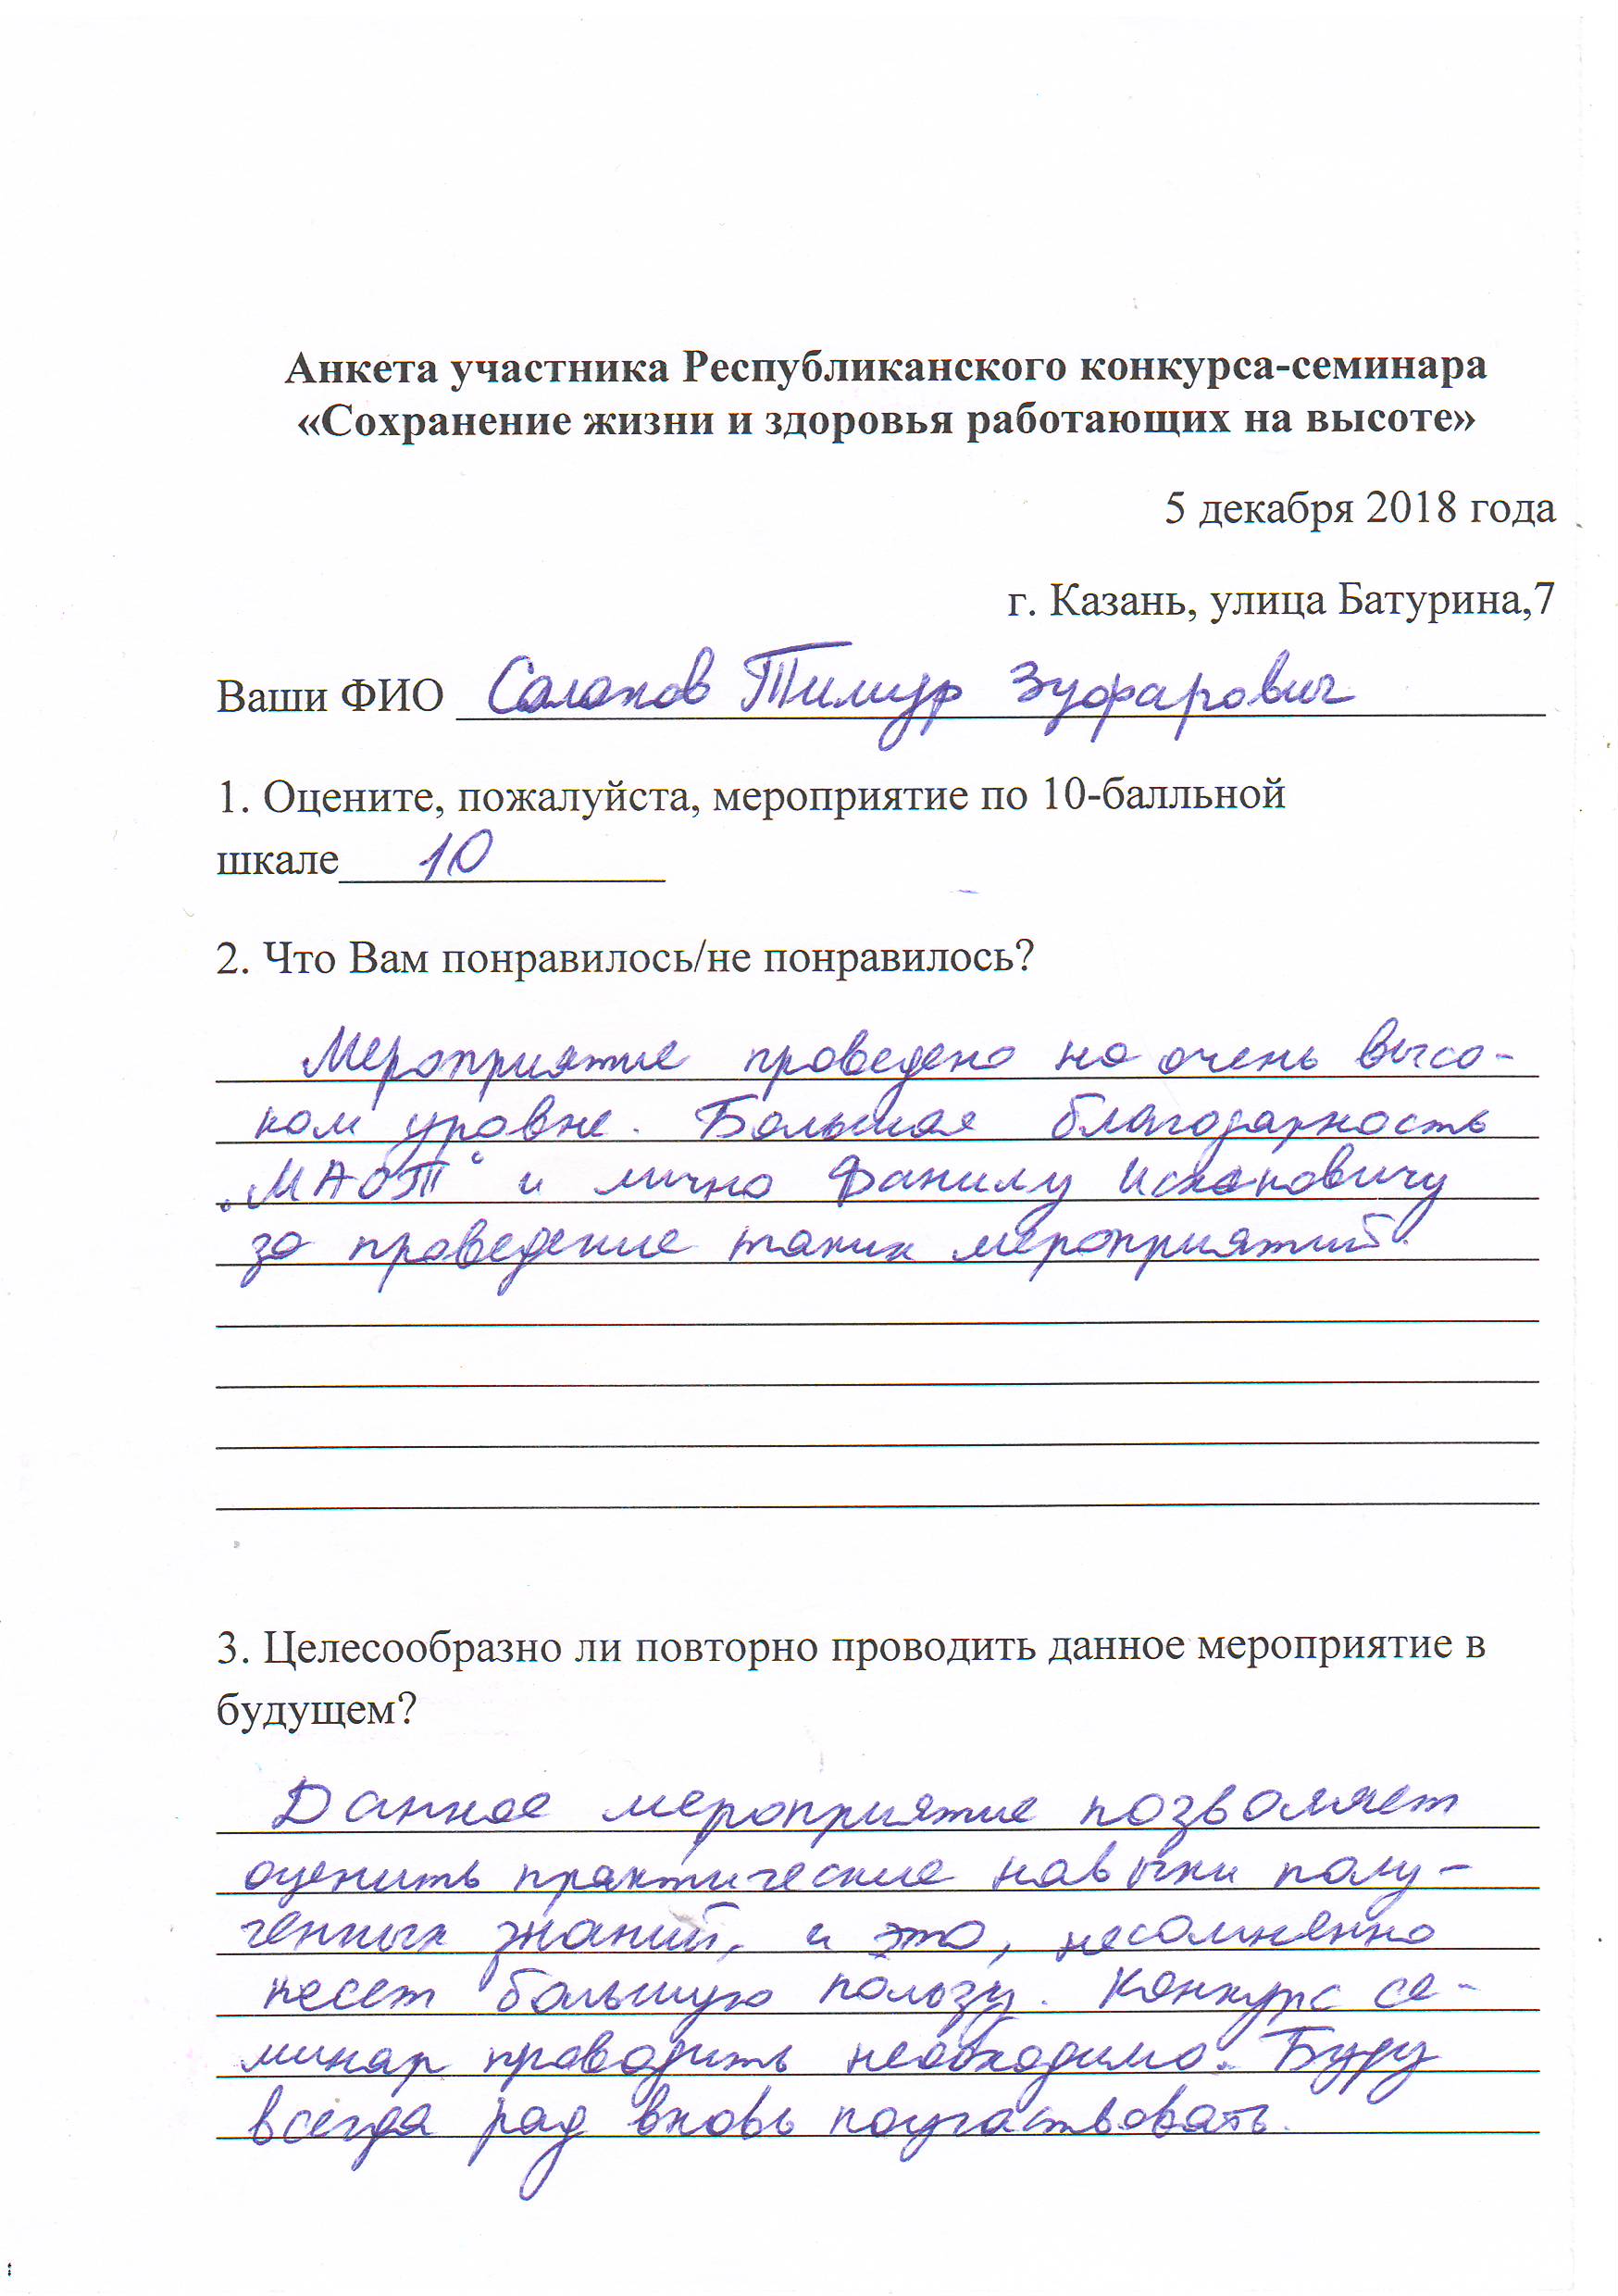 Анкета участника Республиканского конкурса-семинара
«Сохранение жизни и здоровья работающих на высоте»
5 декабря 2018 года
г. Казань, улица Батурина,7
Ваши ФИО Салахов Тимур Зуфарович
1. Оцените, пожалуйста, мероприятие по 10-балльной
шкале 10
2. Что Вам понравилось/не понравилось?
Мероприятие проведено на очень высо-
ком уровне. Большая благодарность
„МАОТ“ и лично Фанилу Исхаковичу
за проведение таких мероприятий.
3. Целесообразно ли повторно проводить данное мероприятие в
будущем?
Данное мероприятие позволяет
оценить практические навыки полу-
ченных знаний, и это, несомненно
несет большую пользу. Конкурс се-
минар проводить необходимо. Буду
всегда рад вновь поучаствовать.